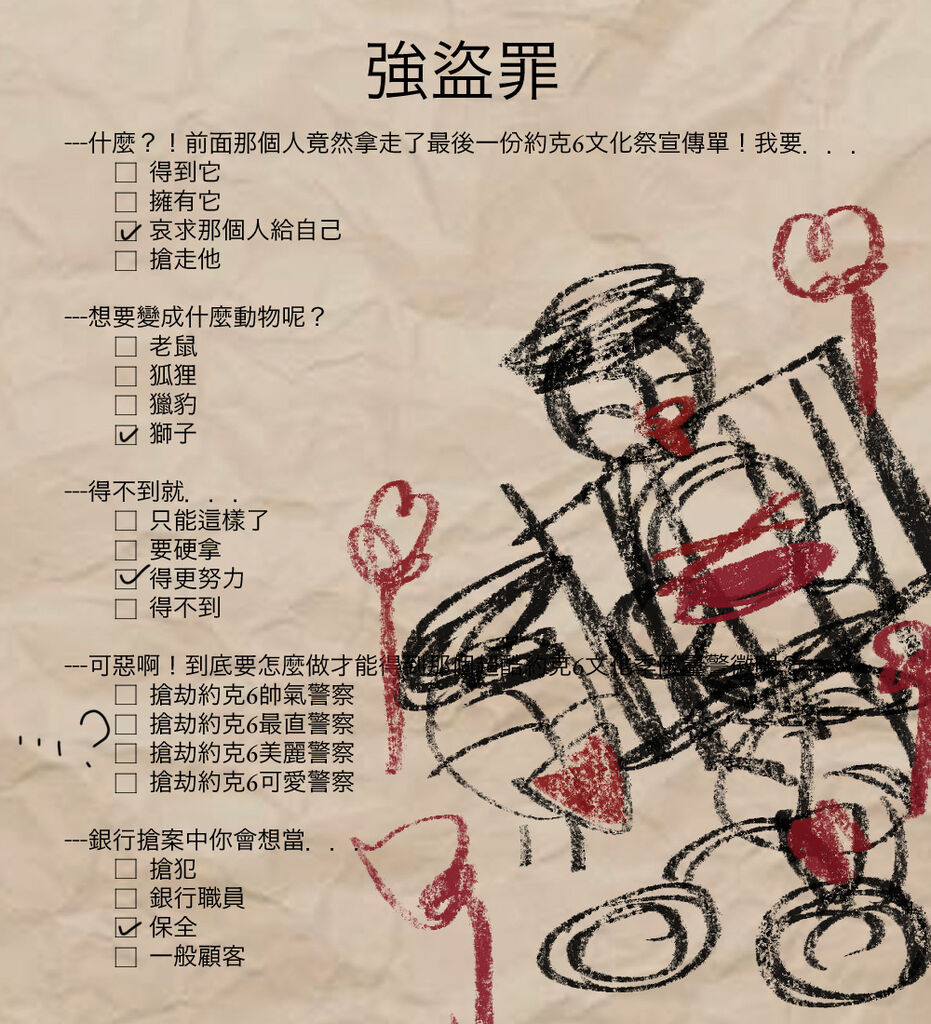 強盜罪
---什麼？！前面那個人竟然拿走了最後一份約克6文化祭宣傳單！我要．．．
☐ 得到它
☐ 擁有它
☑ 哀求那個人給自己
☐ 搶走他
---想要變成什麼動物呢？
☐ 老鼠
☐ 狐狸
☐ 獵豹
☑ 獅子
---得不到就．．．
☐ 只能這樣了
☐ 要硬拿
☑ 得更努力
☐ 得不到
---可惡啊！到底要怎麼做才能得到那個 約克6文化祭
☐ 搶劫約克6帥氣警察
☐ 搶劫約克6最直警察
☐ 搶劫約克6美麗警察
☐ 搶劫約克6可愛警察
...?
---銀行搶案中你會想當．．．
☐ 搶犯
☐ 銀行職員
☑ 保全
☐ 一般顧客